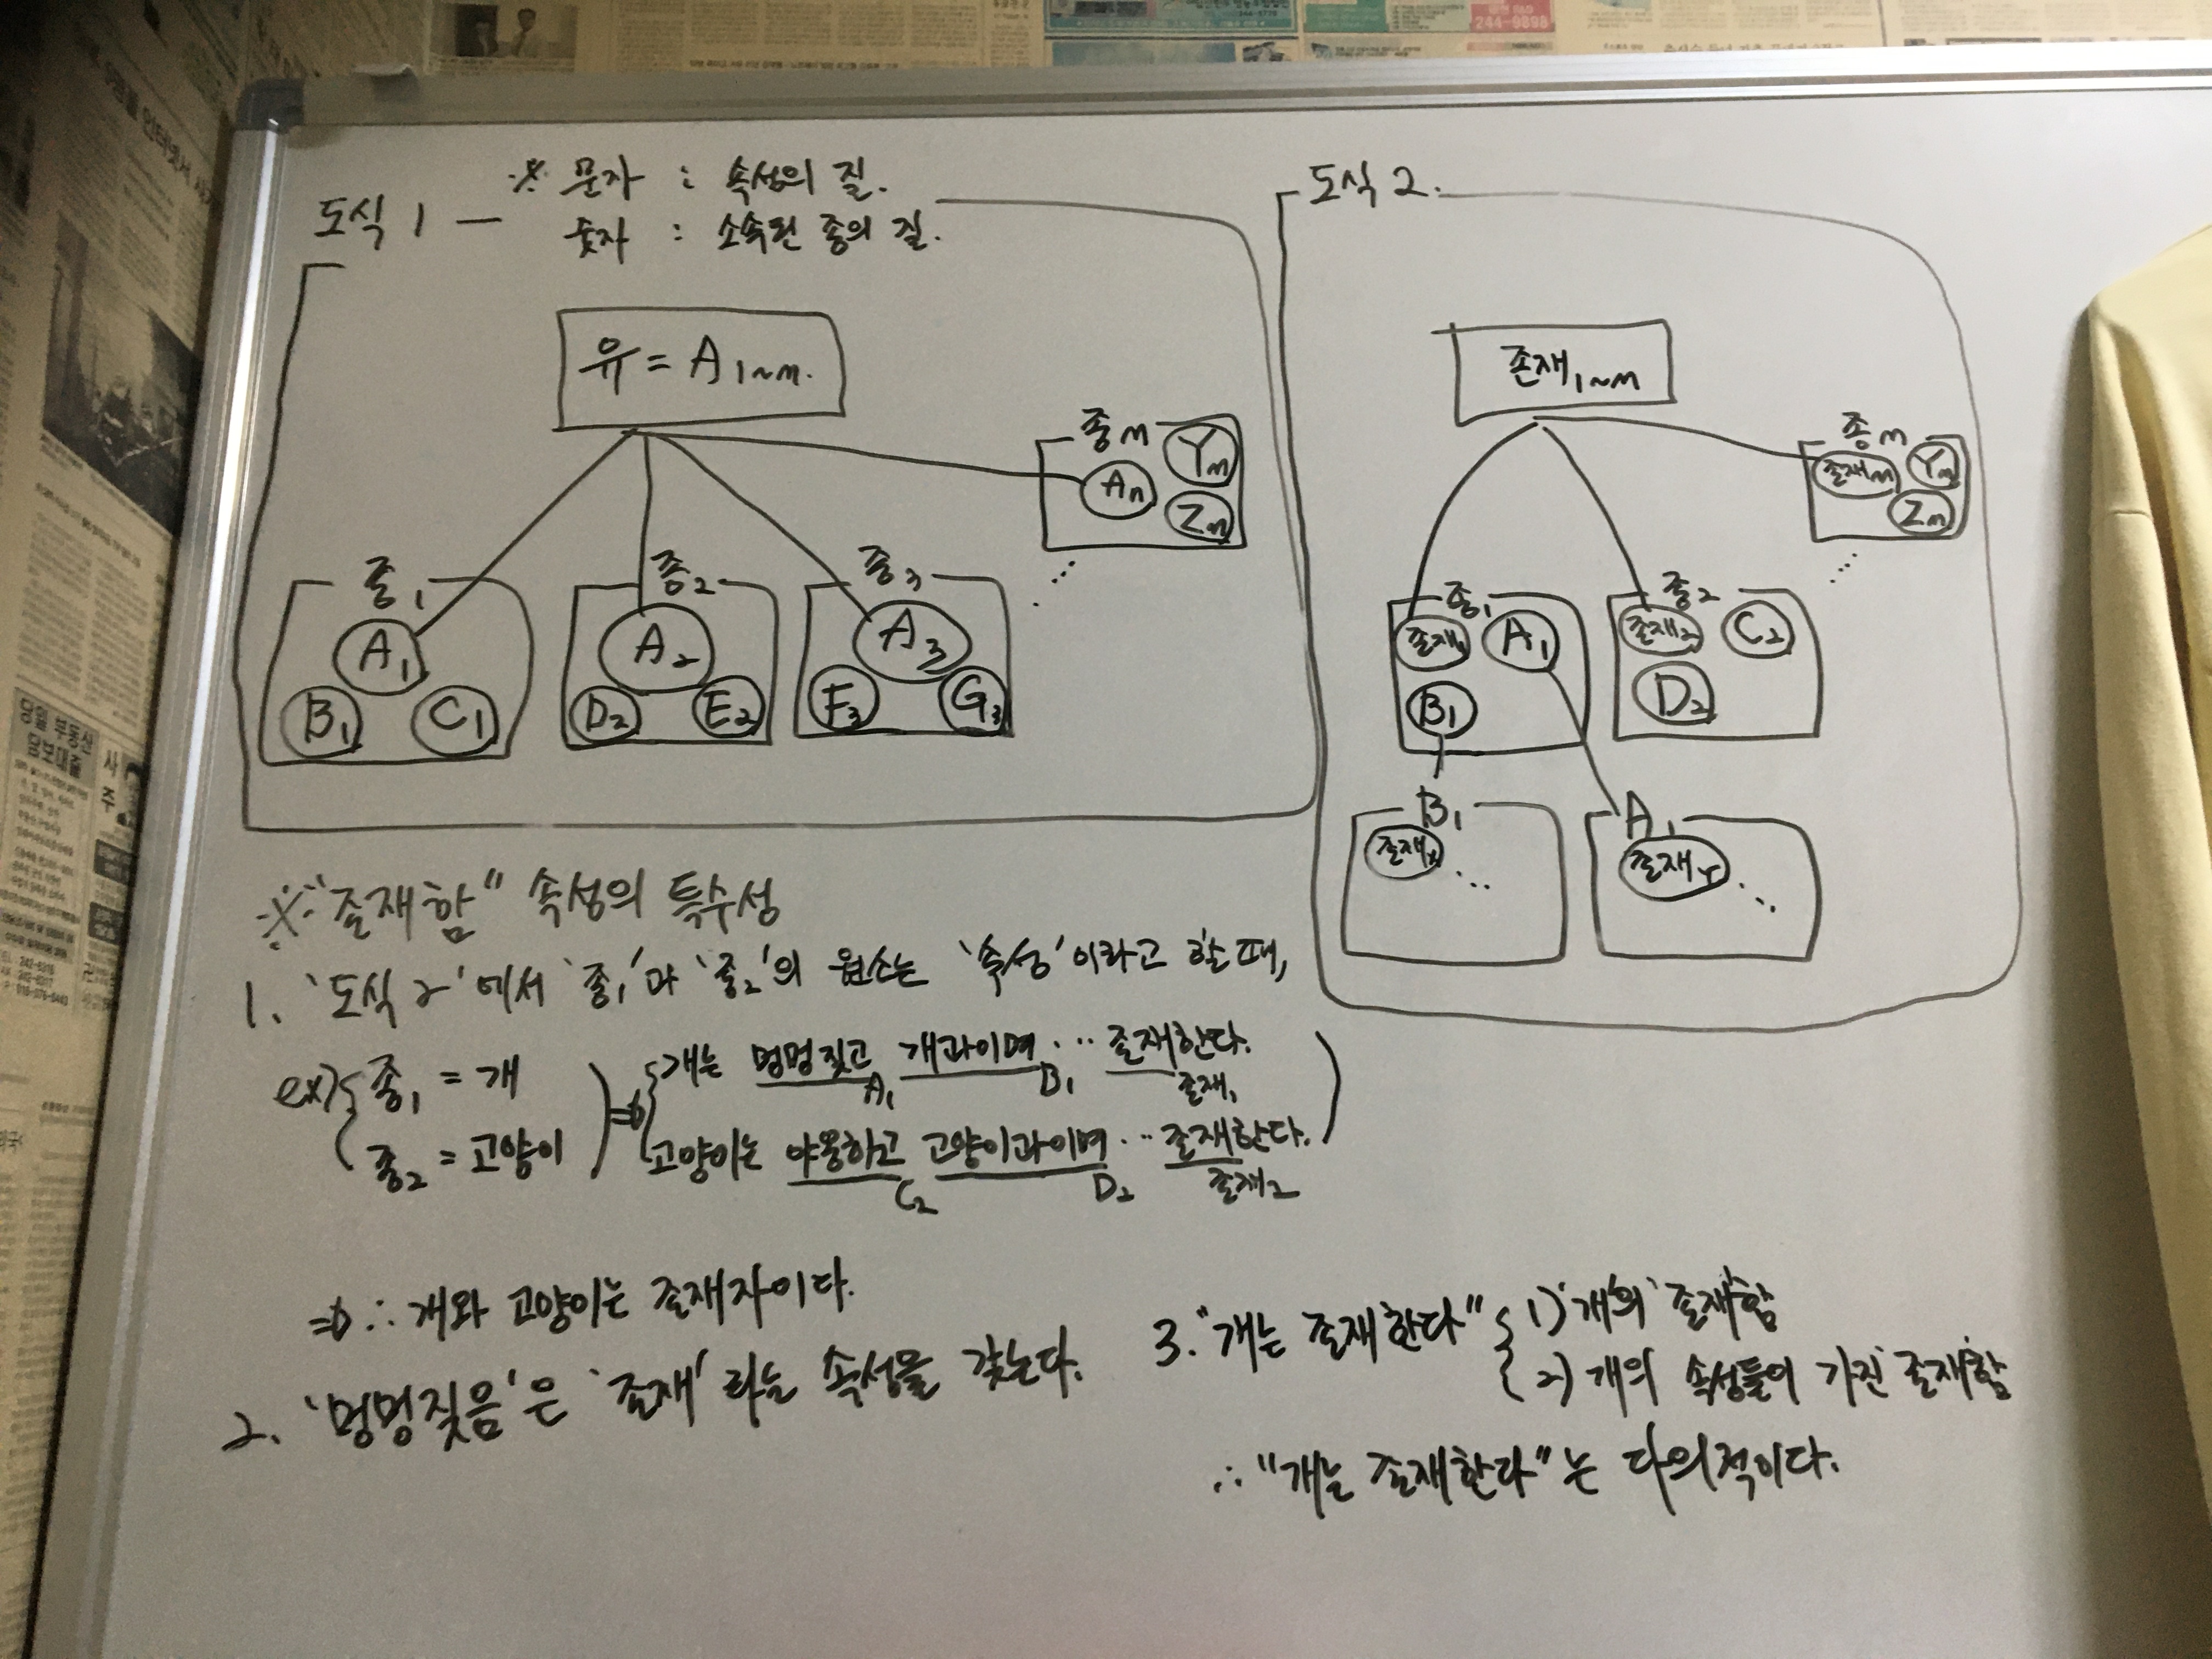 ※ 문자 : 속성의 질.
도식 1 — 숫자 : 소속된 종의 질.
유 = A1~m.
종m
An
Ym
Zm
종1
A1
B1
C1
종2
A2
D2
E2
종3
A3
F3
G3
도식 2.
존재1~m
종m
존재m
Ym
Zm
종1
존재1
A1
B1
종2
존재2
C2
D2
B1
존재x
...
A1
존재y
...
※ "존재함" 속성의 특수성
1. '도식 2'에서 '종1'과 '종2'의 원소는 '속성'이라고 할 때,
ex) 종1 = 개
종2 = 고양이
개는 멍멍짖고 개과이며 ... 존재한다.
A1 B1 존재1
고양이는 야옹하고 고양이과이며 ... 존재한다.
C2 D2 존재2
⇒ ∴ 개와 고양이는 존재자이다.
2. '멍멍짖음'은 '존재'라는 속성을 갖는다.
3. "개는 존재한다" 1) '개'의 '존재함'
2) 개의 속성들이 가진 '존재함'
∴ "개는 존재한다"는 다의적이다.
244-9898
당월 부동산
담보대출
사
주